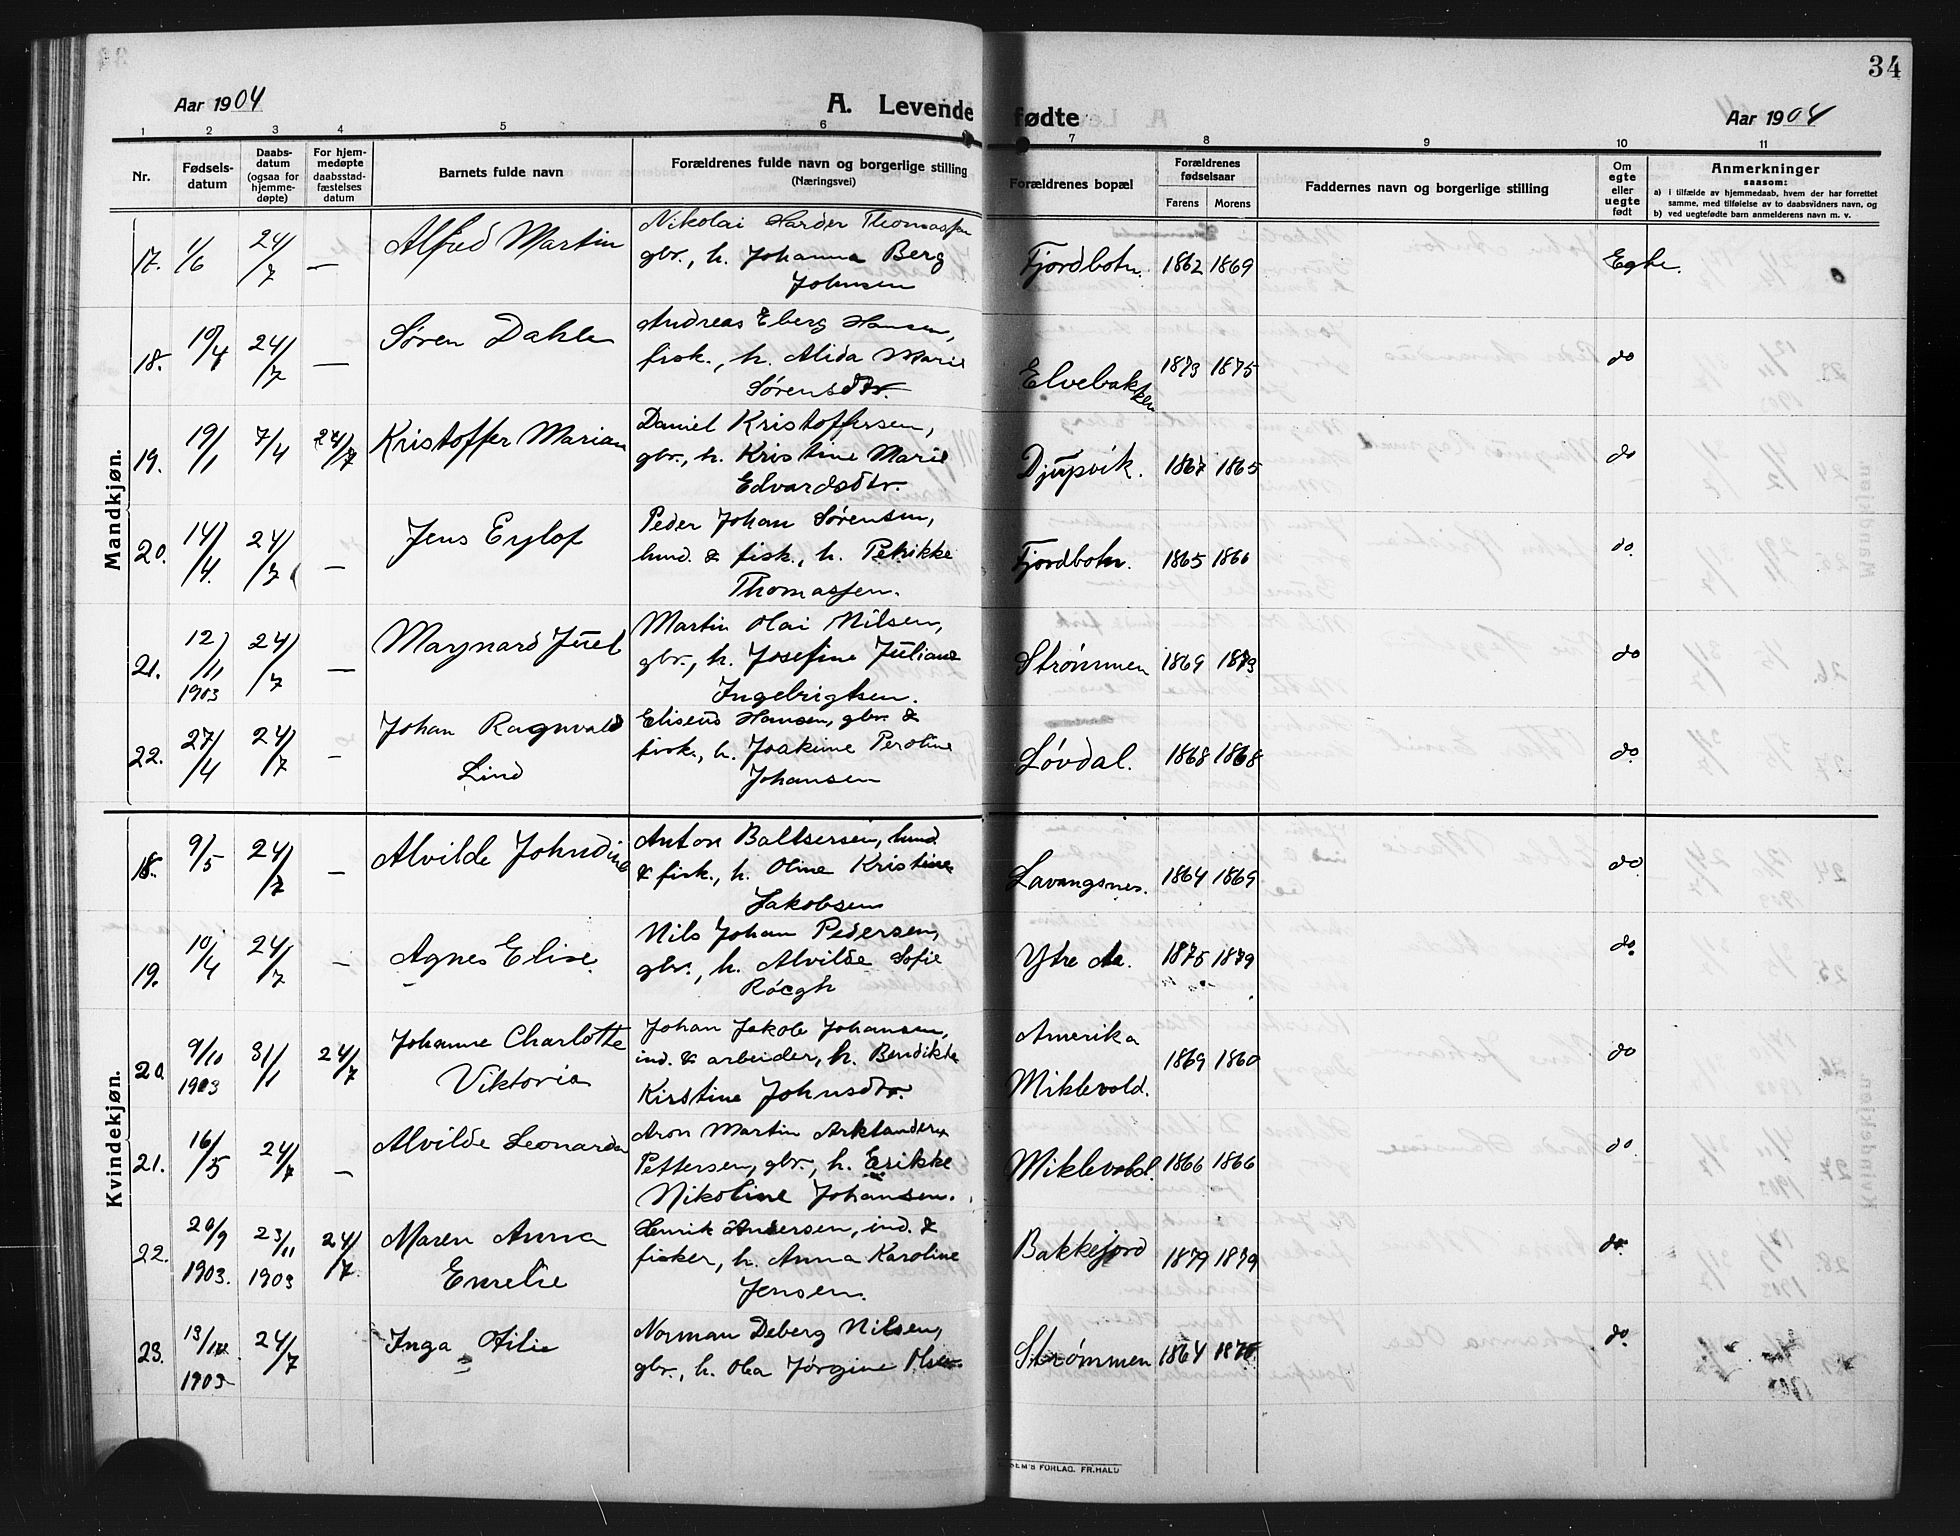 34
Aar 1904
A. Levende fødte
Aar 1904
1 2 3 4 5 6 7 8 9 10 11
Nr.
Fødsels-
datum
Daabs-
datum
(ogsaa for
hjemme-
døpte)
For hjem-
medøpte
daabsstad-
fæstelses
datum
Barnets fulde navn
Forældrenes fulde navn og borgerlige stilling
(Næringsvei)
Forældrenes bopæl
Forældrenes
fødselsaar
Farens
Morens
Faddernes navn og borgerlige stilling
Om
egte
eller
uegte
født
Anmerkninger
saasom:
a) i tilfælde av hjemmedaab, hvem der har forrettet
samme, med tilføielse av to daabsvidners navn, og
b) ved uegtefødte barn anmelderens navn m. v.
Mandkjøn.
17. 1/6 24/7 — Alfred Martin
Nikolai Harder Thomassen
gbr., h. Johanna Berg
Johnsen
Fjordbotn. 1862 1869 Egte.
18. 10/4 24/7 — Søren Dahle
Andreas Eberg Hansen,
fisk., h. Alida Marie
Sørensdtr.
Elvebakken 1873 1875 do
19. 19/1 7/4 24/7 Kristoffer Marian
Daniel Kristoffersen,
gbr., h. Kristine Marie
Edvardsdtr.
Djupvik. 1867 1865 do
20. 14/4. 24/7 — Jens Erlof
Peder Johan Sørensen,
hmd. & fisk., h. Petrikke
Thomassen.
Fjordbotn. 1865 1866 do.
21. 12/11 1903 24/7 — Magnard Juel
Martin Olai Nilsen,
gbr., h. Josefine Juliane
Ingebrigtsen.
Strømmen 1869 1873 do
22. 27/4 24/7 — Johan Ragnvald
Lind
Eliseus Hansen, gbr. &
fisk., h. Joakime Peroline
Johansen
Løvdal. 1868 1868 do.
Kvindekjøn.
18. 9/5 24/7 — Alvilde Johndine
Anton Baltsersen, hmd.
& fisk., h. Oline Kristine
Jakobsen
Lavangsnes. 1864 1869 do.
19. 10/4 24/7 — Agnes Elise.
Nils Johan Pedersen,
gbr., h. Alvilde Sofie
Røegh
Ytre Aa. 1875 1879 do.
20. 9/10 1903 31/1 24/7 Johanne Charlotte
Viktoria
Johan Jakob Johansen,
ind. & arbeider, h. Bendikte
Kirstine Johnsdtr.
Amerika
Miklevold. 1869 1860 do
21. 16/5 24/7 — Alvilde Leonarda
Aron Martin Arktander
Pettersen, gbr., h. Erikke
Nikoline Johansen.
Miklevold. 1866 1866 do.
22. 20/9 1903. 23/11 1903 24/7. Maren Anna
Emelie
Henrik Andersen, ind. &
fisker, h. Anna Karoline
Jensen.
Bakkejord 1879 1879 do.
23. 1903 24/7 Inga
Norman Deberg Nilsen,
gbr., h. Ola Jørgine Olsen
Strømmen 1864 do.
FORLAG. FR. HALD